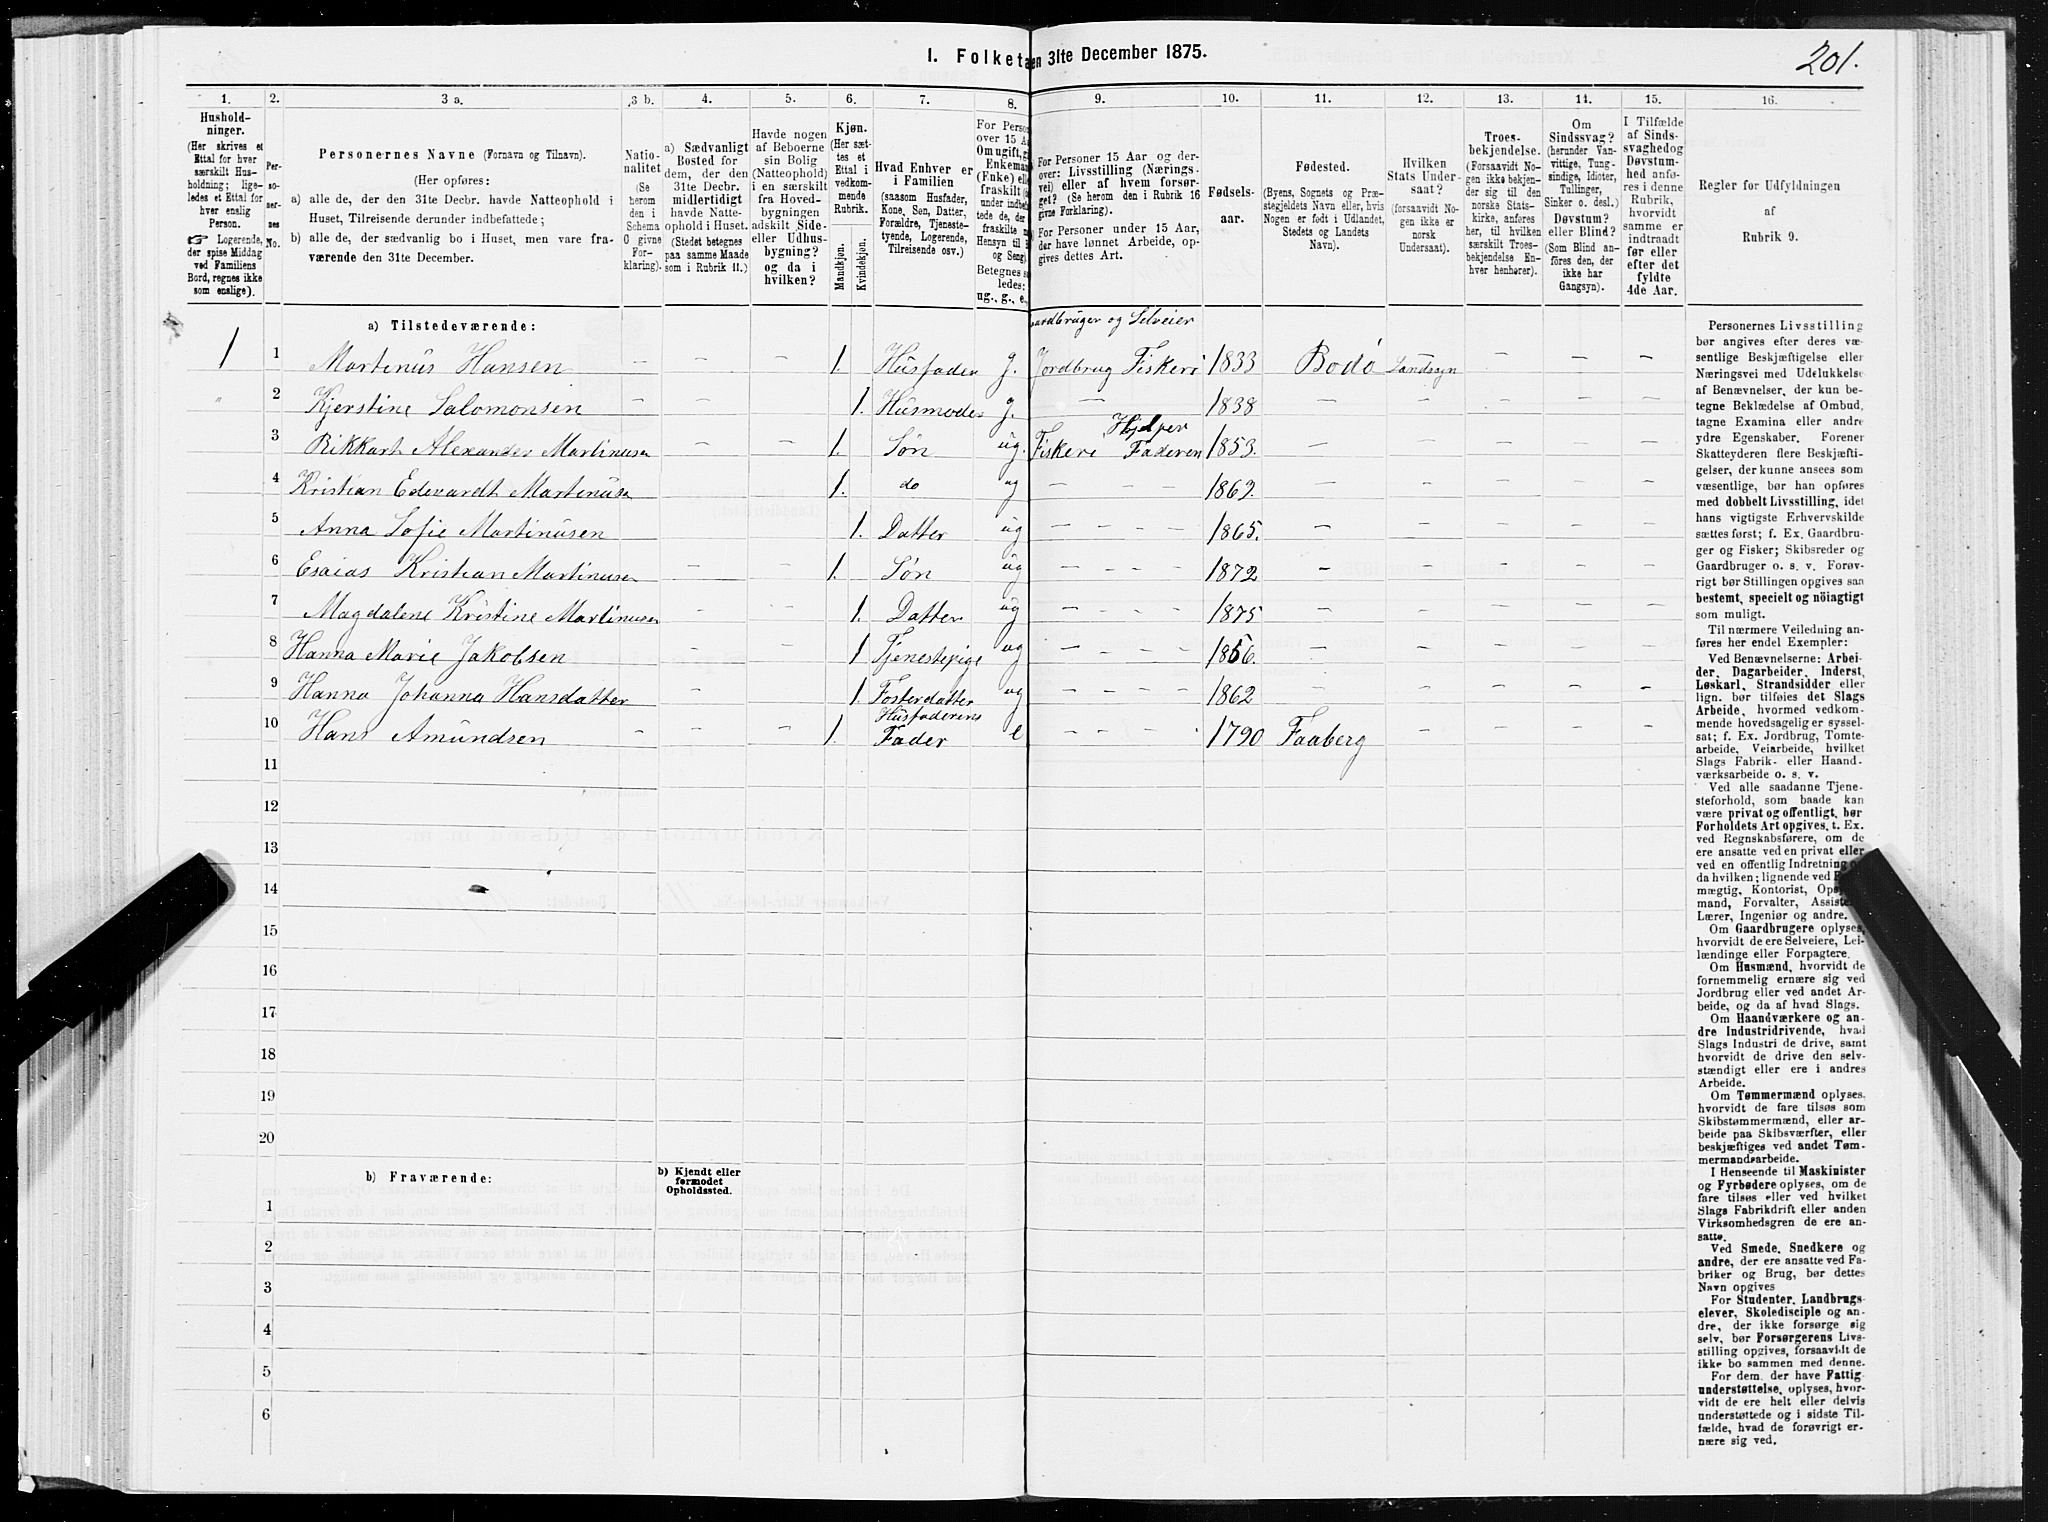 I. Folketæ en 31te December 1875.
201.
1. 2. 3 a. 3 b. 4. 5. 6. 7. 8. 9. 10. 11. 12. 13. 14. 15. 16.
Hushold-
ninger.
(Her skrives et
Ettal for hver
særskilt Hus-
holdning; lige-
ledes et Ettal for
hver enslig
Person.
☞ Logerende,
der spise Middag
ved Familiens
Bord, regnes ikke
som enslige).
Per-
so-
ner-
nes
No.
Personernes Navne (Fornavn og Tilnavn).
(Her opføres:
a) alle de, der den 31te Decbr. havde Natteophold i
Huset, Tilreisende derunder indbefattede;
b) alle de, der sædvanlig bo i Huset, men vare fra-
værende den 31te December.
Natio-
nalitet
(Se
herom
den i
Schema
C givne
For-
klaring).
a) Sædvanligt
Bosted for
dem, der den
31te Decbr.
midlertidigt
havde Natte-
ophold i Huset.
(Stedet betegnes
paa samme Maade
som i Rubrik 11.)
Havde nogen
af Beboerne
sin Bolig
(Natteophold)
i en særskilt
fra Hoved-
bygningen
adskilt Side-
eller Udhus-
bygning?
og da i
hvilken?
Kjøn.
(Her sæt-
tes et
Ettal i
vedkom-
mende
Rubrik.
Mandkjøn.
Kvindekjøn.
Hvad Enhver er
i Familien
(saasom Husfader,
Kone, Søn, Datter,
Forældre, Tjeneste-
tyende, Logerende,
Tilreisende osv.)
For Person
over 15 Aa
Om ugift, g
Enkeman
(Enke) elle
fraskilt
Betegnes s
ledes:
ug., g., e.,
For Personer 15 Aar og der-
over: Livsstilling (Nærings-
vei) eller af hvem forsør-
get? (Se herom den i Rubrik 16
givne Forklaring).
For Personer under 15 Aar,
der have lønnet Arbeide, op-
gives dettes Art.
Fødsels-
aar.
Fødested.
(Byens, Sognets og Præ-
stegjeldets Navn eller, hvis
Nogen er født i Udlandet,
Stedets og Landets
Navn).
Hvilken
Stats Under-
saat?
(forsaavidt No-
gen ikke er
norsk
Undersaat).
Troes-
bekjendelse.
(Forsaavidt No-
gen ikke bekjen-
der sig til den
norske Stats-
kirke, anføres
her, til hvilken
særskilt Troes-
bekjendelse En-
hver henhører).
Om
Sindssvag?
(herunder Van-
vittige, Tung-
sindige, Idioter,
Tullinger,
Sinker o. desl.)
Døvstum?
eller Blind?
(Som Blind an-
føres den, der
ikke har
Gangsyn).
I Tilfælde
af Sinds-
svaghed og
Døvstum-
hed anfø-
res i denne
Rubrik,
hvorvidt
samme er
indtraadt
før eller
efter det
fyldte
4de Aar.
Regler for Udfyldningen
af
Rubrik 9.
a) Tilstedeværende:
aardbruger og Selveier
1 1 Martinus Hansen — — — 1. Husfader g. Jordbrug Fiskeri 1833 Bodø Landsogn — — —
" 2 Kjerstine Salomonsen — — 1. Husmoder g. — 1838 — — — — —
Hjelper
3 Rikkart Alexander Martinusen — — 1. Søn ug. Fiskeri Faderen 1853. — — — — —
4 Kristian Edevardt Martinusn 1. do ug — — — — 1862. — — — — —
5 Anna Sofie Martinusen 1. Datter ug — — — — 1865. — — — — —
6 Esaias Kristian Martinusen — — 1. Søn ug — — — — 1872 — — — — —
7 Magdalene Kristine Martinusen — — 1. Datter ug — — — — 1875 — — — — —
8 Hanna Marie Jakobsen — — 1 Tjenestepige ug — — — — 1856. — — — — —
9 Hanna Johanna Hansdatter — — 1. Fosterdatter ug — — — — 1862 — — — — —
Husfaderens
10 Hans Amundsen — — — 1. Fader e — — — 1790 Faaberg — — — —
11
12
13
14
15
16
17
18
19
20
b) Fraværende:
b) Kjendt eller
formodet
Opholdssted.
1
2
3
4
5
6
Personernes Livsstilling
bør angives efter deres væ-
sentlige Beskjæftigelse eller
Næringsvei med Udelukkelse
af Benævnelser, der kun be-
tegne Beklædelse af Ombud,
tagne Examina eller andre
ydre Egenskaber. Forener
Skatteyderen flere Beskjæfti-
gelser, der kunne ansees som
væsentlige, bør han opføres
med dobbelt Livsstilling, idet
hans vigtigste Erhvervskilde
sættes først; f. Ex. Gaardbru-
ger og Fisker; Skibsreder og
Gaardbruger o. s. v. Forøv-
rigt bør Stillingen opgives saa
bestemt, specielt og nöiagtigt
som muligt.
Til nærmere Veiledning an-
føres her endel Exempler:
Ved Benævnelserne: Arbei-
der, Dagarbeider, Inderst,
Løskarl, Strandsidder eller
lign. bør tilføies det Slags
Arbeide, hvormed vedkom-
mende hovedsagelig er syssel-
sat; f. Ex. Jordbrug, Tomte-
arbeide, Veiarbeide, hvilket
Slags Fabrik- eller Haand-
værksarbeide o. s. v.
Ved alle saadanne Tjene-
steforhold, som baade kan
være privat og offentligt, bør
Forholdets Art opgives, t. Ex.
ved Regnskabsførere, om de
ere ansatte ved en privat eller
ved en offentlig Indretning
da hvilken; lignende ved
mægtig, Kontorist, Ops
mand, Forvalter, Assiste
Lærer, Ingeniør og andre.
Om Gaardbrugere oplyses,
hvorvidt de ere Selveiere, Lei-
lændinge eller Forpagtere.
Om Husmænd, hvorvidt de
fornemmelig ernære sig ved
Jordbrug eller ved andet Ar-
beide, og da af hvad Slags.
Om Haandværkere og an-
dre Industridrivende, hvad
Slags Industri de drive, samt
hvorvidt de drive den selv-
stændigt eller ere i andres
Arbeide.
Om Tømmermænd oplyses,
hvorvidt de fare tilsøs som
Skibstømmermænd, eller ar-
beide paa Skibsværfter, eller
beskjæftiges ved andet Tøm-
mermandsarbeide.
I Henseende til Maskinister
og Fyrbødere oplyses, om de
fare tilsøs eller ved hvilket
Slags Fabrikdrift eller anden
Virksomhedsgren de ere an-
satte.
Ved Smede, Snedkere og
andre, der ere ansatte ved Fa-
briker og Brug, bør dettes
Navn opgives
For Studenter, Landbrugs-
elever, Skoledisciple og an-
dre, der ikke forsørge sig
selv, bør Forsørgerens Livs-
stilling opgives, forsaavidt de
ikke bo sammen med denne.
For dem, der have Fattig-
understøttelse, oplyses, hvor-
vidt de ere helt eller delvis
understøttede og i sidste Til-
fælde, hvad de forøvrigt er-
nære sig ved.